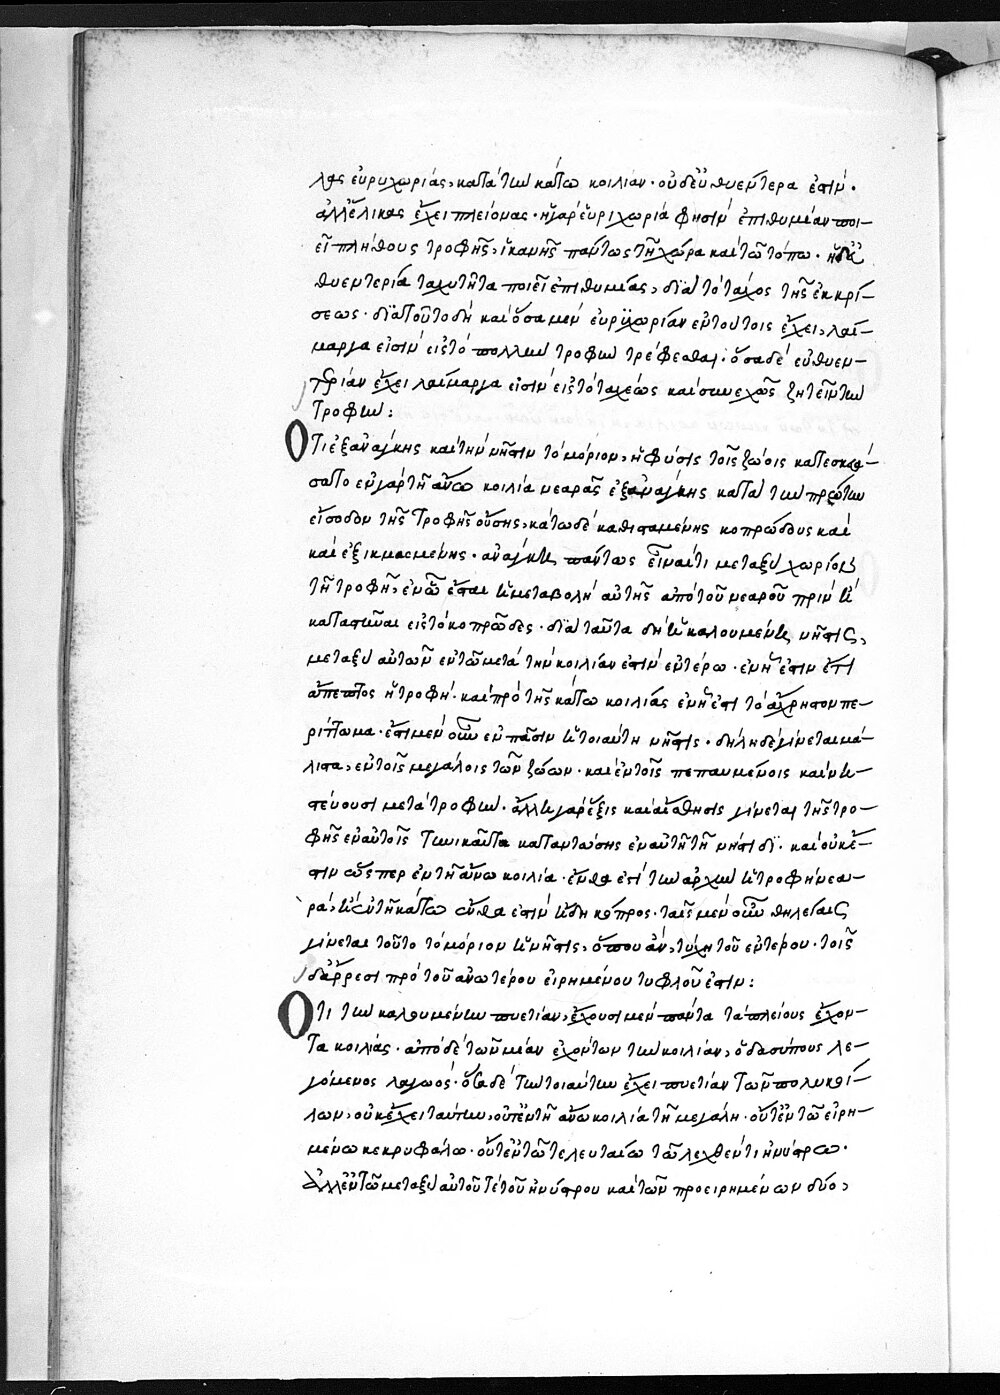 λας εὐρυχωρίας, κατὰ τὴν κάτω κοιλίαν· οὐδ' εὐθυέντερα ἐστίν·
ἀλλ' ἕλικας ἔχει πλείονας· ἡ γὰρ εὐριχωρία φησὶν ἐπιθυμίαν ποι-
εῖ πλήθους τροφῆς, ἱκανῆς πάντως τῆ χώρα καὶ τῶ τόπω· ἡ δὲ
θυεντερία ταχυτῆτα ποιεῖ ἐπιθυμίας, διὰ τὸ τάχος τῆς ἐκκρί-
σεως· διὰ τοῦτο δὴ καὶ ὅσα μὲν εὐρυχωρίαν ἐν τούτοις ἔχει, λαί-
μαργα εἰσὶν εἰς τὸ πολλὴν τροφὴν τρέφεσθαι· ὅσα δὲ εὐθυεν-
τερίαν ἔχει λαίμαργα εἰσὶν εἰς τὸ ταχέως καὶ συνεχῶς ζητεῖν τὴν
τροφήν:
Ὅτι ἐξανάγκης καὶ τὴν νῆστιν τὸ μόριον, ἡ φύσις τοῖς ζώοις κατεσκευά-
σατο ἐν γὰρ τῆ ἄνω κοιλία νεαρᾶς ἐξανάγκης κατὰ τὴν πρώτην
εἴσοδον τῆς τροφῆς οὔσης, κάτω δὲ καθισταμένης κοπρώδους καὶ
καὶ ἐξικμασμένης· ἀνάγκη πάντως εἶναί τι μεταξὺ χωρίον
τῆ τροφῆ, ἐν ὧ ἔσται ἡ μεταβολὴ αὐτῆς ἀπὸ τοῦ νεαροῦ πρὶν ἢ
καταστῆναι εἰς τὸ κοπρῶδες· διὰ ταῦτα δὴ ἡ καλουμένη νῆστις,
μεταξὺ αὐτῶν ἐν τῶ μετὰ τὴν κοιλίαν ἐστὶν ἐντέρω· ἐν ἧ ἐστιν ἔτι
ἄπεπτος ἡ τροφή· καὶ πρὸ τῆς κάτω κοιλίας ἐν ἧ ἐστι τὸ ἄχρηστον πε-
ρίττωμα· ἔστι μὲν οὖν ἐν πᾶσιν ἡ τοιαύτη νῆστις· δήλη δὲ γίνεται μά-
λιστα, ἐν τοῖς μεγάλοις τῶν ζώων· καὶ ἐν τοῖς πεπαυμένοις καὶ νη-
στεύουσι μετὰ τροφήν· ἄλλη γὰρ ἕξις καὶ αἴσθησις γίνεται τῆς τρο-
φῆς ἐν αὐτοῖς τηνικαῦτα καταντώσης ἐν αὐτῆ τῆ νήστιδι· καὶ οὐκ ἔ-
στιν ὥσπερ ἐν τῆ ἄνω κοιλία· ἔνθα ἐστὶ τὴν ἀρχὴν ἡ τροφὴ νεα-
ρά, ἢ ἐν τῆ κάτω ἔνθα ἐστὶν ἤδη κόπρος· ταῖς μὲν οὖν θηλείαις
γίνεται τοῦτο τὸ μόριον ἡ νῆστις, ὅπου ἂν, τύχη τοῦ ἐντέρου· τοῖς
δ' ἄρρεσι πρὸ τοῦ ἀνωτέρου εἰρημένου τυφλοῦ ἐστιν:
Ὅτι τὴν καλουμένην πυετίαν, ἔχουσι μὲν πάντα τὰ πλείους ἔχον-
τα κοιλίας· ἀπὸ δὲ τῶν μίαν ἐχόντων τὴν κοιλίαν, ὁ δασύπους λε-
γόμενος λαγωός· ὅσα δὲ τὴν τοιαύτην ἔχει πυετίαν τῶν πολυκοί-
λων, οὐκ ἔχει ταύτην, οὔτ' ἐν τῆ ἄνω κοιλία τῆ μεγάλη· οὔτ' ἐν τῶ εἰρη-
μένω κεκρυφάλω· οὔτ' ἐν τῶ τελευταίω τῶ λεχθέντι ἠνύστρω·
ἀλλ' ἐν τῶ μεταξὺ αὐτοῦ τε τοῦ ἠνύστρου καὶ τῶν προειρημένων δύο,